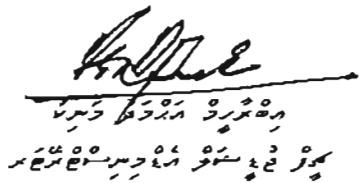 އިބްރާހީމް އަޙްމަދު މަނިކު
ޗީފް ޖުޑީޝަލް އެޑްމިނިސްޓްރޭޓަރ